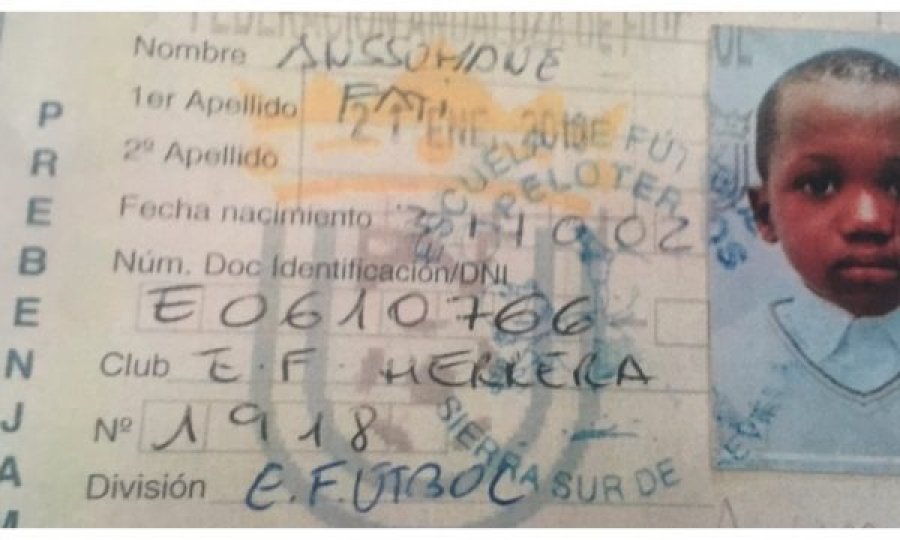 FEDERACION ANDALUZA DE FUT
Nombre ANSSUMANE
1er Apellido FATI
21 ENE. 2010
2º Apellido
Fecha nacimiento 311002
Núm. Doc Identificación/DNI
E0610766
Club E.F. HERRERA
Nº 1918
División E.FUTBOL
PREBENJAM
ESCUELA DE FÚT
PELOTEROS
SIERRA SUR DE